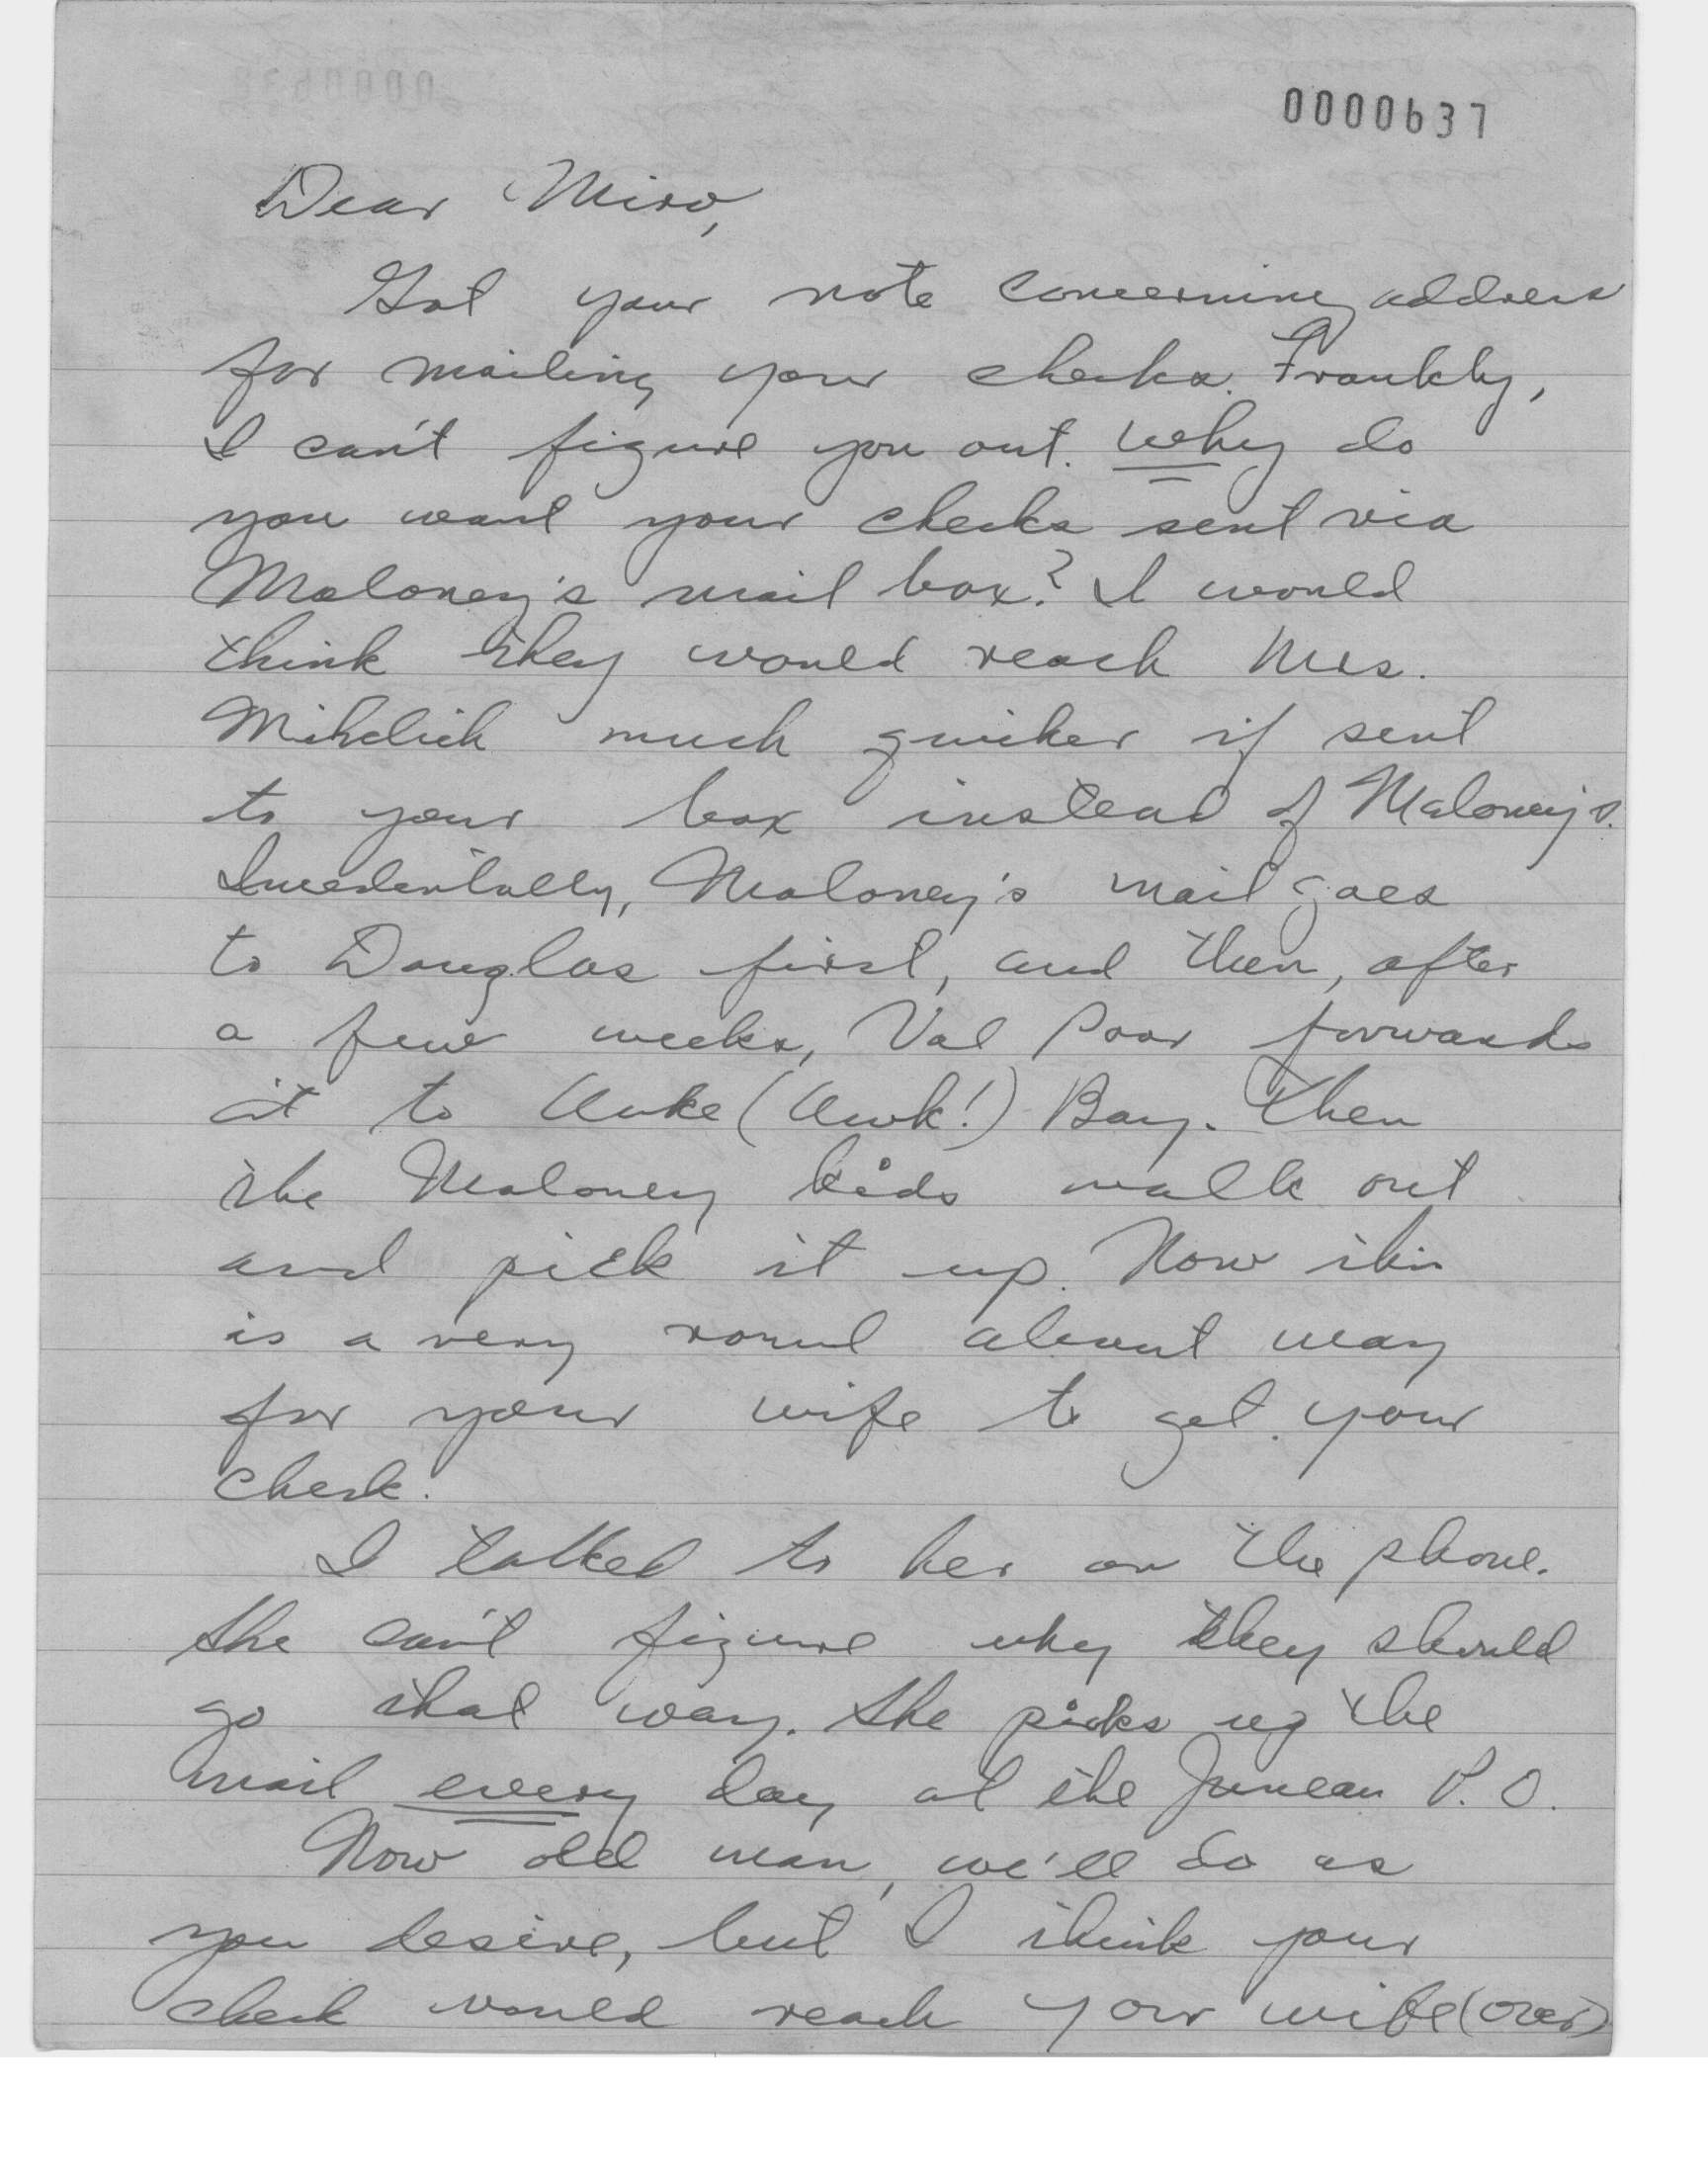 0000637
Dear Miro,
Got your note concerning address
for mailing your checks. Frankly,
I can't figure you out. Why do
you want your checks sent via
Maloney's mail box? I would
think they would reach Mrs.
Mihelich much quicker if sent
to your box instead of Maloneys.
Incedentally, Maloney's mail goes
to Douglas first, and then, after
a few weeks, Val Poor forwards
it to Auke (Awk!) Bay. Then
the Maloney kids walk out
and pick it up. Now this
is a very round about way
for your wife to get your
check.
I talked to her on the phone.
She can't figure why they should
go that way. She picks up the
mail every day at the Juneau P.O.
Now old man, we'll do as
you desire, but I think your
check would reach your wife (over)